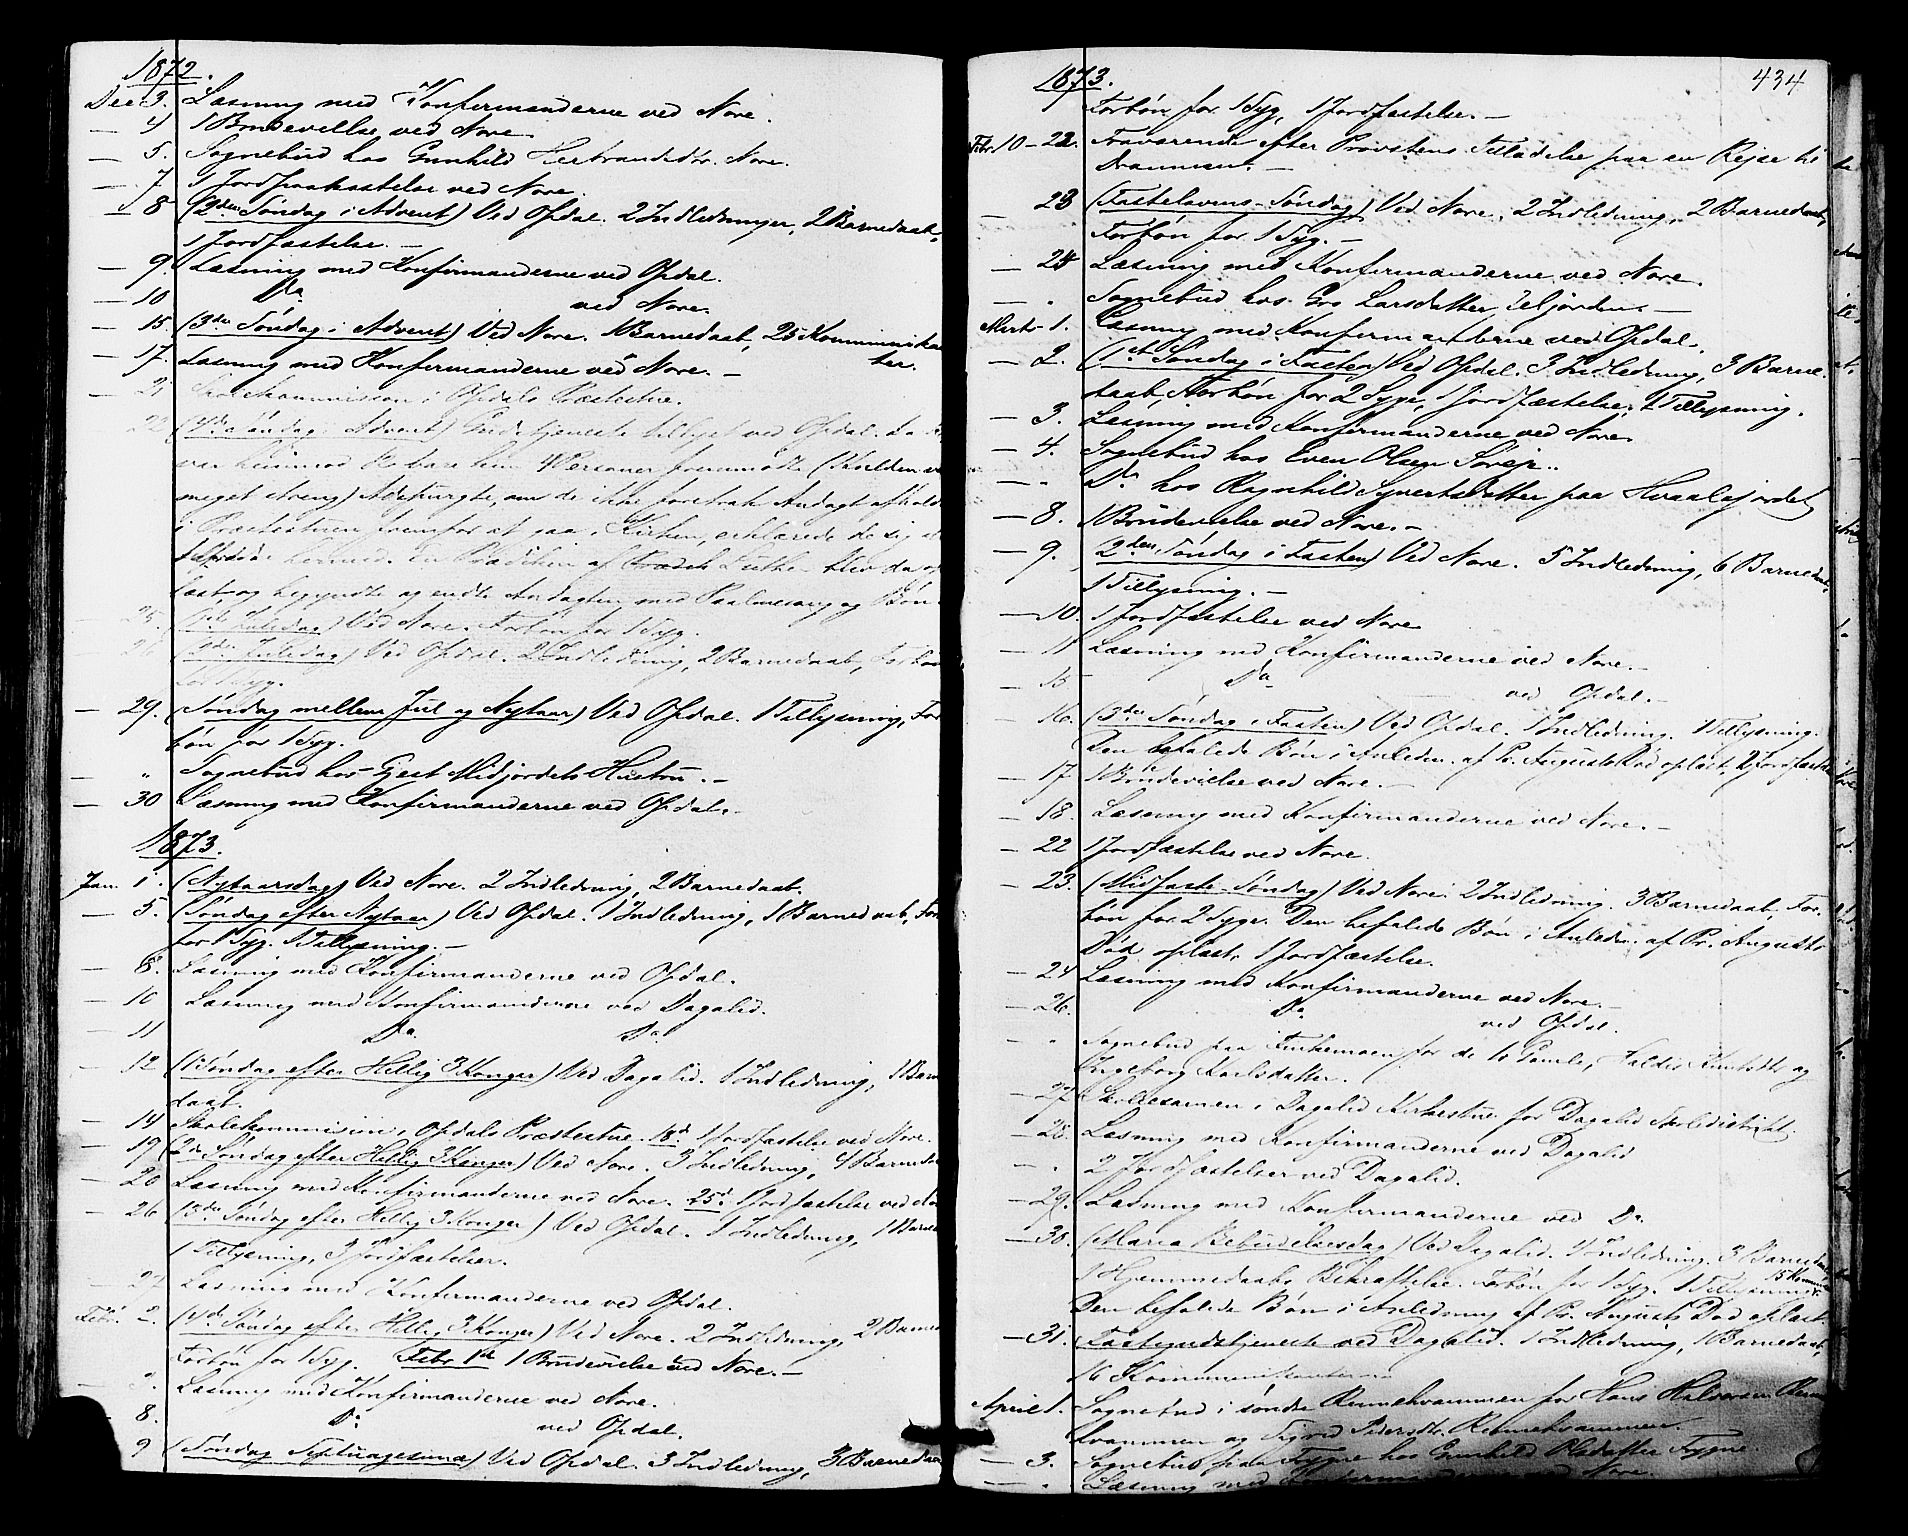 1872.
Dec 3. Læsning med Konfirmanderne ved Nore.
— 4 1 Brudevielse ved Nore.
— 5. Sognebud hos Gunhild Herbrandsdtr. Nore.
— 7 1 Jordpaakastelse ved Nore.
— 8 (2den Søndag i Advent) Ved Opdal. 2 Indledninger, 2 Barnedaab,
1 Jordfæstelse. —
— 9. Læsning med Konfirmanderne ved Opdal.
— 10 Do. ved Nore.
— 15. (3de Søndag i Advent) Ved Nore. 1 Barnedaab, 25 Kommunikan
ter.
— 17. Læsning med Konfirmanderne ved Nore. —
— 21 Skolekommission i Opdals Præstestue.
22 (4de Søndag i Advent) Gudstjeneste tillyst ved Opdal. Da
var kun 4 Personer fremmødte (Kulden var
meget streng) Adspurgte, om de ikke foretrak Andagt afholdt
i Præstestuen fremfor at gaa i Kirken, erklærede de sig
tilfredse hermed. En Prædiken af Luther blev da op
læst, og begyndte og endte Andagten med Psalmesang og Bøn.
— 25. (1ste Juledag) Ved Nore. Forbøn for 1 Syg.
— 26 (2den Juledag) Ved Opdal. 2 Indledning, 2 Barnedaab, Forbøn
for 1 Syg.
— 29. (Søndag mellem Jul og Nytaar) Ved Opdal. 1 Tillysning, For
bøn for 1 Syg.
— „ Sognebud hos Gjest Midjordets Hustru. —
— 30 Læsning med Konfirmanderne ved Opdal.
1873.
Jan. 1. (Nytaarsdag) Ved Nore. 2 Indledning, 2 Barnedaab.
— 5. (Søndag efter Nytaar) Ved Opdal. 1 Indledning, 1 Barnedaab, For
for 1 Syg. 1 Tillysning. —
— 8. Læsning med Konfirmanderne ved Opdal.
— 10 Læsning med Konfirmanderne ved Dagalid.
— 11 Do. Do.
— 12 (1 Søndag efter Hellig 3 Konger) Ved Dagalid. 1 Indledning, 1 Barne
daab.
— 14 Skolekommission i Opdals Præstestue. 18d 1 Jordfæstelse ved Nore.
— 19 (2de Søndag efter Hellig 3 Konger) Ved Nore. 3 Indledning, 4 Barneda
— 20 Læsning med Konfirmanderne ved Nore. 25d 1 Jordfæstelse ved No
— 26 (3de Søndag efter Hellig 3 Konger) Ved Opdal. 1 Indledning, 1 Barne
1 Tillysning, 3 Jordfæstelser.
— 27 Læsning med Konfirmanderne ved Opdal.
Febr. 2. (4de Søndag efter Hellig 3 Konger) Ved Nore. 2 Indledning, 2 Barned
Forbøn for 1 Syg. Febr 1ste 1 Brudevielse ved Nore. —
— 3. Læsning med Konfirmanderne ved Nore.
8. Do. ved Opdal.
9 (Søndag Septuagesima) Ved Opdal. 3 Indledning, 3 Barnedaa
1873. 434
Forbøn for 1 Syg, 1 Jordfæstelse. —
Febr. 10 - 22. Fraværende efter Provstens Tilladelse paa en Rejse til
Drammen. —
— 23 (Fastelavns-Søndag) Ved Nore, 2 Indledning, 2 Barnedaab,
Forbøn for 1 Syg. —
— 25 Læsning med Konfirmanderne ved Nore.
— „ Sognebud hos Gro Larsdatter —
Marts 1. Læsning med Konfirmanderne ved Opdal.
— 2. (1st Søndag i Fasten) Ved Opdal. 3 Indledning, 3 Barne
daab, Forbøn for 2 Syge, 1 Jordfæstelse, 1 Tillysning.
— 3. Læsning med Konfirmanderne ved Nore.
— 4. Sognebud hos Even Olsen
— „ Do hos Ragnhild Syvertsdatter paa Hvaalsjordet
— 8. 1 Brudevielse ved Nore. —
— 9. (2den Søndag i Fasten) Ved Nore. 5 Indledning, 6 Barnedaab,
1 Tillysning. —
— 10. 1 Jordfæstelse ved Nore
— 11 Læsning med Konfirmanderne ved Nore. —
— 15 Do ved Opdal. —
— 16. (3de Søndag i Fasten) Ved Opdal. 1 Indledning. 1 Tillysning.
Den befalede Bøn i Anledn. af Pr. Augusts Død oplæst, 2 Jordfæstel
— 17 1 Brudevielse ved Nore. —
— 18. Læsning med Konfirmanderne ved Nore. —
— 22 1 Jordfæstelse ved Nore.
— 23. (Midfaste-Søndag) Ved Nore. 2 Indledning. 3 Barnedaab, For
bøn for 2 Syge. Den befalede Bøn i Anledn. af Pr. Augusts
Død oplæst, 1 Jordfæstelse.
— 24 Læsning med Konfirmanderne ved Nore. —
— 26. Do ved Opdal.
— „ Sognebud paa for de to Gamle, og
Ingeborg Karlsdatter.
— 27 Skoleexamen i Dagalid Kirkestue for Dagalid Skoledistrikt.
— 28. Læsning med Konfirmanderne ved Dagalid
— „ 2 Jordfæstelser ved Dagalid.
— 29. Læsning med Konfirmanderne ved Do.
— 30. (Maria Bebudelsesdag) Ved Dagalid. 1 Indledning. 3 Barnedaab,
1 Hjemmedaabs Bekræftelse. Forbøn for 1 Syg. 1 Tillysning 15 Kommu
Den befalede Bøn i Anledning af Pr. Augusts Død oplæst.
— 31. Fastegudstjeneste ved Dagalid. 1 Indledning, 1 Barnedaab,
16 Kommunikanter
April 1. Sognebud i søndre Rennehvammen for Hans Halvorsen Renne
hvammen og Sigrid Pedersdtr. Rennehvammen.
— 3. Sognebud paa Fygne hos Gunhild Olsdatter Fygne.
— „ Læsning med Konfirmanderne ved Nore.